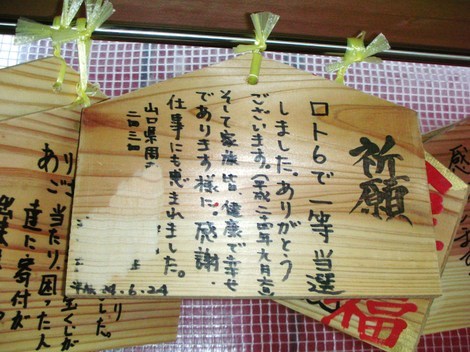 祈願
ロト6で一等当選
しました。ありがとう
ございます。(平成二四年九月
そして家族皆健康で幸せ
であります様に。感謝.
仕事にも恵まれました。
山口県周
平成24.6.24
福
当たり、困った人
達に寄付が